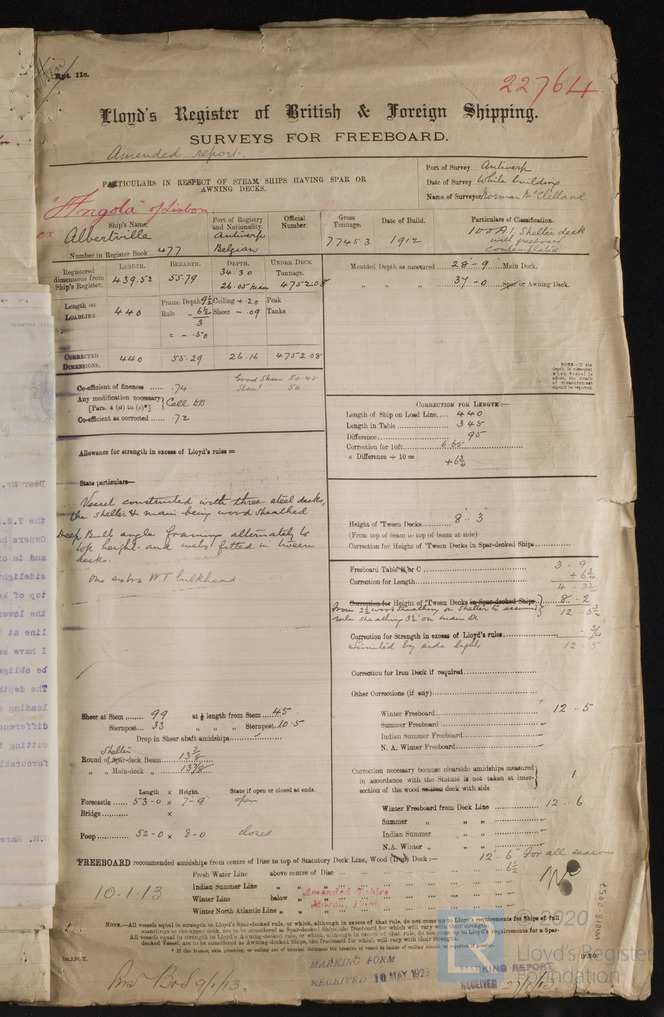 Rpt. 11c.
22764
Lloyd's Register of British & Foreign Shipping.
SURVEYS FOR FREEBOARD.
Amended report.
PARTICULARS IN RESPECT OF STEAM SHIPS HAVING SPAR OR AWNING DECKS.
Port of Survey Antwerp
Date of Survey While building
Name of Surveyor Norman McClelland
"Angola" of Lisbon
ex
Ship's Name. Port of Registry and Nationality. Official Number. Gross Tonnage. Date of Build. Particulars of Classification.
Albertville Antwerp Belgian 7745.3 1912 100A1, Shelter deck with freeboard contemplated
Number in Register Book 477
LENGTH. BREADTH. DEPTH. UNDER DECK Tonnage.
Registered dimensions from Ship's Register. 439.52 55.79 34.30 26.05 main 4752.08
Moulded Depth as measured 28-9 Main Deck.
" " " 37-0 Spar or Awning Deck.
Length on LOADLINE 440 Frame Depth 9½ Ceiling +.20 Peak
Rule 6½ Sheer -.09 Tanks
3
= -.50
CORRECTED DIMENSIONS. 440 55.29 26.16 4752.08
Co-efficient of fineness .74
Any modification necessary [Para. 4 (a) to (e)*] Cell DB
Co-efficient as corrected .72
CORRECTION FOR LENGTH:—
Length of Ship on Load Line 440
Length in Table 345
Difference 95
Correction for 10ft. 6.65
× Difference ÷ 10 =
+6¼
Allowance for strength in excess of Lloyd's rules =
State particulars—
Vessel constructed with three steel decks,
the shelter & main being wood sheathed
Deep Bulb angle framing alternately to
top height and webs fitted in tween
decks.
One extra WT bulkhead
Height of 'Tween Decks 8' 3"
(From top of beam to top of beams at side)
Correction for Height of 'Tween Decks in Spar-decked Ships
Freeboard Table B or C 3 - 9
Correction for Length + 6¼
Correction for Height of 'Tween Decks in Spar-decked Ships 8 - 2
Correction for Strength in excess of Lloyd's rules
Limited by side lights 12 5
Correction for Iron Deck if required
Other Corrections (if any)
Winter Freeboard 12 - 5
Summer Freeboard
Indian Summer Freeboard
N. A. Winter Freeboard
Sheer at Stem 99 at ⅛ length from Stem 45
Sternpost 33 " " " Sternpost 10.5
Drop in Sheer abaft amidships
Shelter
Round of Spar-deck Beam
" " Main-deck "
Length × Height. State if open or closed at ends.
Forecastle 53-0 × 7-9 open
Bridge ×
Poop 52-0 × 8-0 closed
Correction necessary because clearside amidships measured in accordance with the Statute is not taken at intersection of the wood or iron deck with side 1
Winter Freeboard from Deck Line 12 - 6
Summer " "
Indian Summer " "
N.A. Winter " "
FREEBOARD recommended amidships from centre of Disc to top of Statutory Deck Line, Wood (Iron) Deck:— 12' 6" For all seasons
Fresh Water Line above centre of Disc 6½
Indian Summer Line " "
Winter Line below "
Winter North Atlantic Line " "
Amended Tables
10.1.13
NOTE.—All vessels equal in strength to Lloyd's Spar-decked rule, or which, although in excess of that rule, do not come up to Lloyd's requirements for Ships of full scantlings to the upper deck, are to be considered as Spar-decked Ships, the freeboard for which will vary with their strength.
All vessels equal in strength to Lloyd's Awning-decked rule, or which, although in excess of that rule, do not come up to Lloyd's requirements for a Spar-decked Vessel, are to be considered as Awning-decked Ships, the freeboard for which will vary with their strength.
MARKING FORM
RECEIVED 10 MAY 1923
MARKING REPORT
RECEIVED
© 2020
Lloyd's Register
Foundation
LR